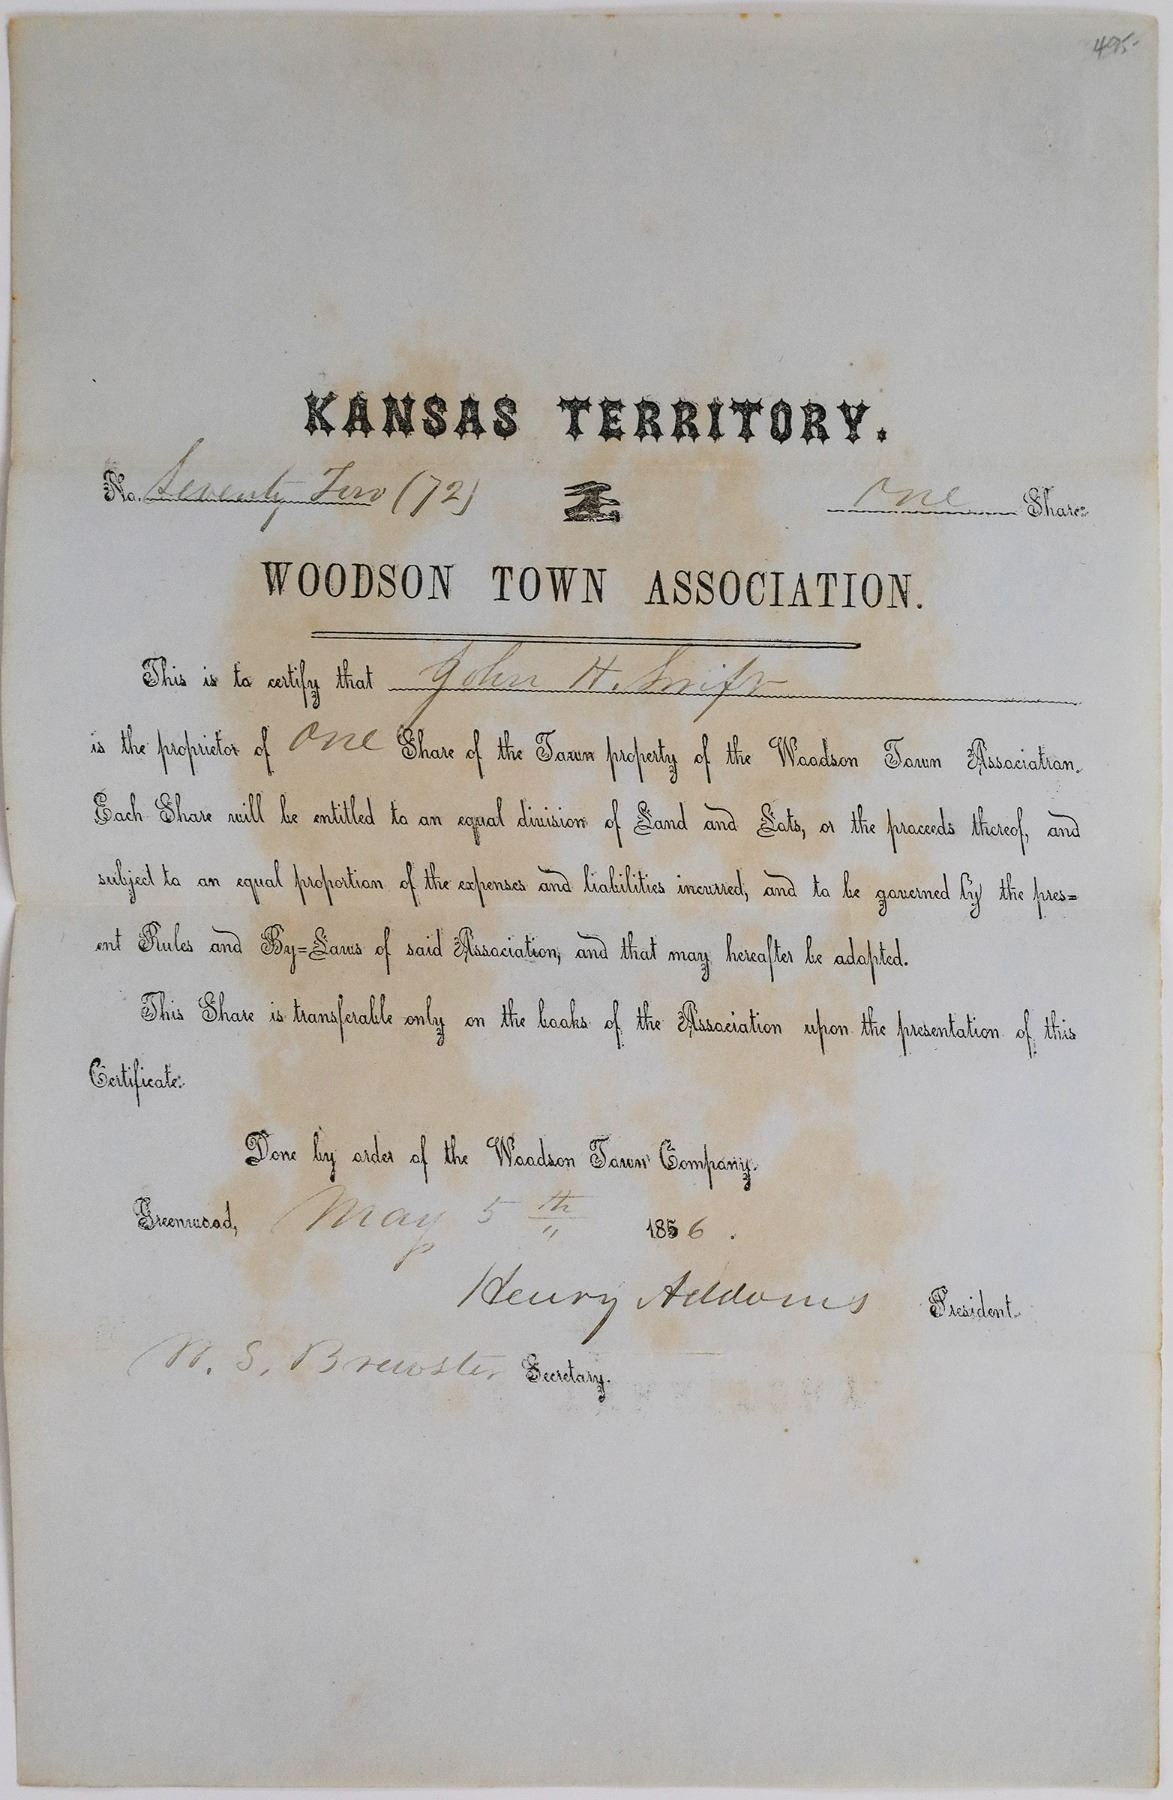 495-
KANSAS TERRITORY.
No. Seventy Two (72) One Share:
WOODSON TOWN ASSOCIATION.
This is to certify that John H. Swift
is the proprietor of One Share of the Town property of the Woodson Town Association.
Each Share will be entitled to an equal division of Land and Lots, or the proceeds thereof, and
subject to an equal proportion of the expenses and liabilities incurred, and to be governed by the pres=
ent Rules and By=Laws of said Association, and that may hereafter be adopted.
This Share is transferable only on the books of the Association upon the presentation of this
Certificate:
Done by order of the Woodson Town Company.
Greenwood, May 5th 1856.
Henry Addoms President.
W. S. Brewster Secretary.